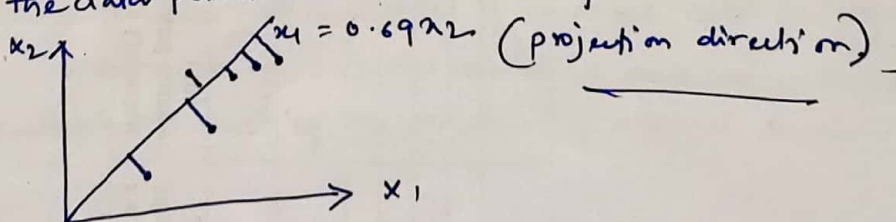 the data
x2
x1 = 0.69x2 (projection direction)
x1